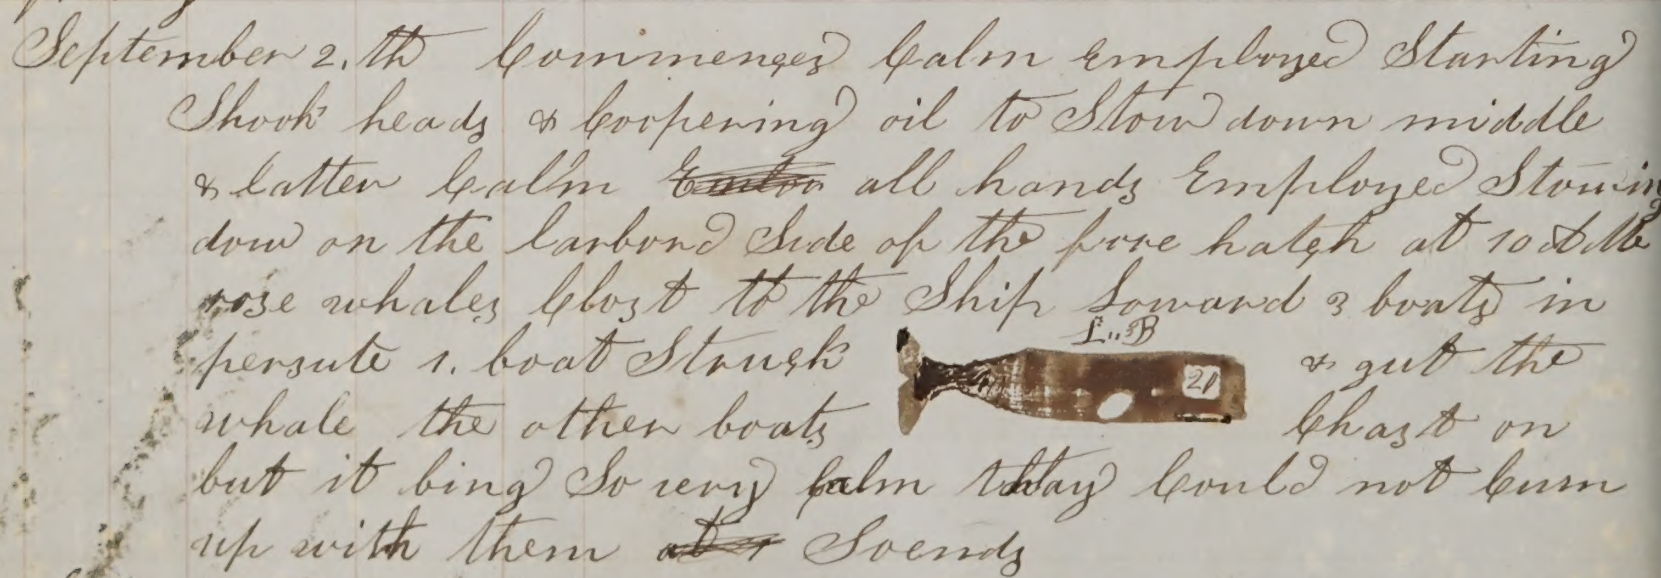 September 2.th Commences Calm Employed Starting
Shook heads & Coopering oil to Stow down middle
& latter Calm all hands Employed Stowing
dow on the larbord Side of the fore hatch at 10
rose whales Clost to the Ship Loward 3 boats in
L,,B
persute 1. boat Struck 20 & gut the
whale the other boats Chast on
but it bing So very Calm thay Could not Cum
up with them So ends